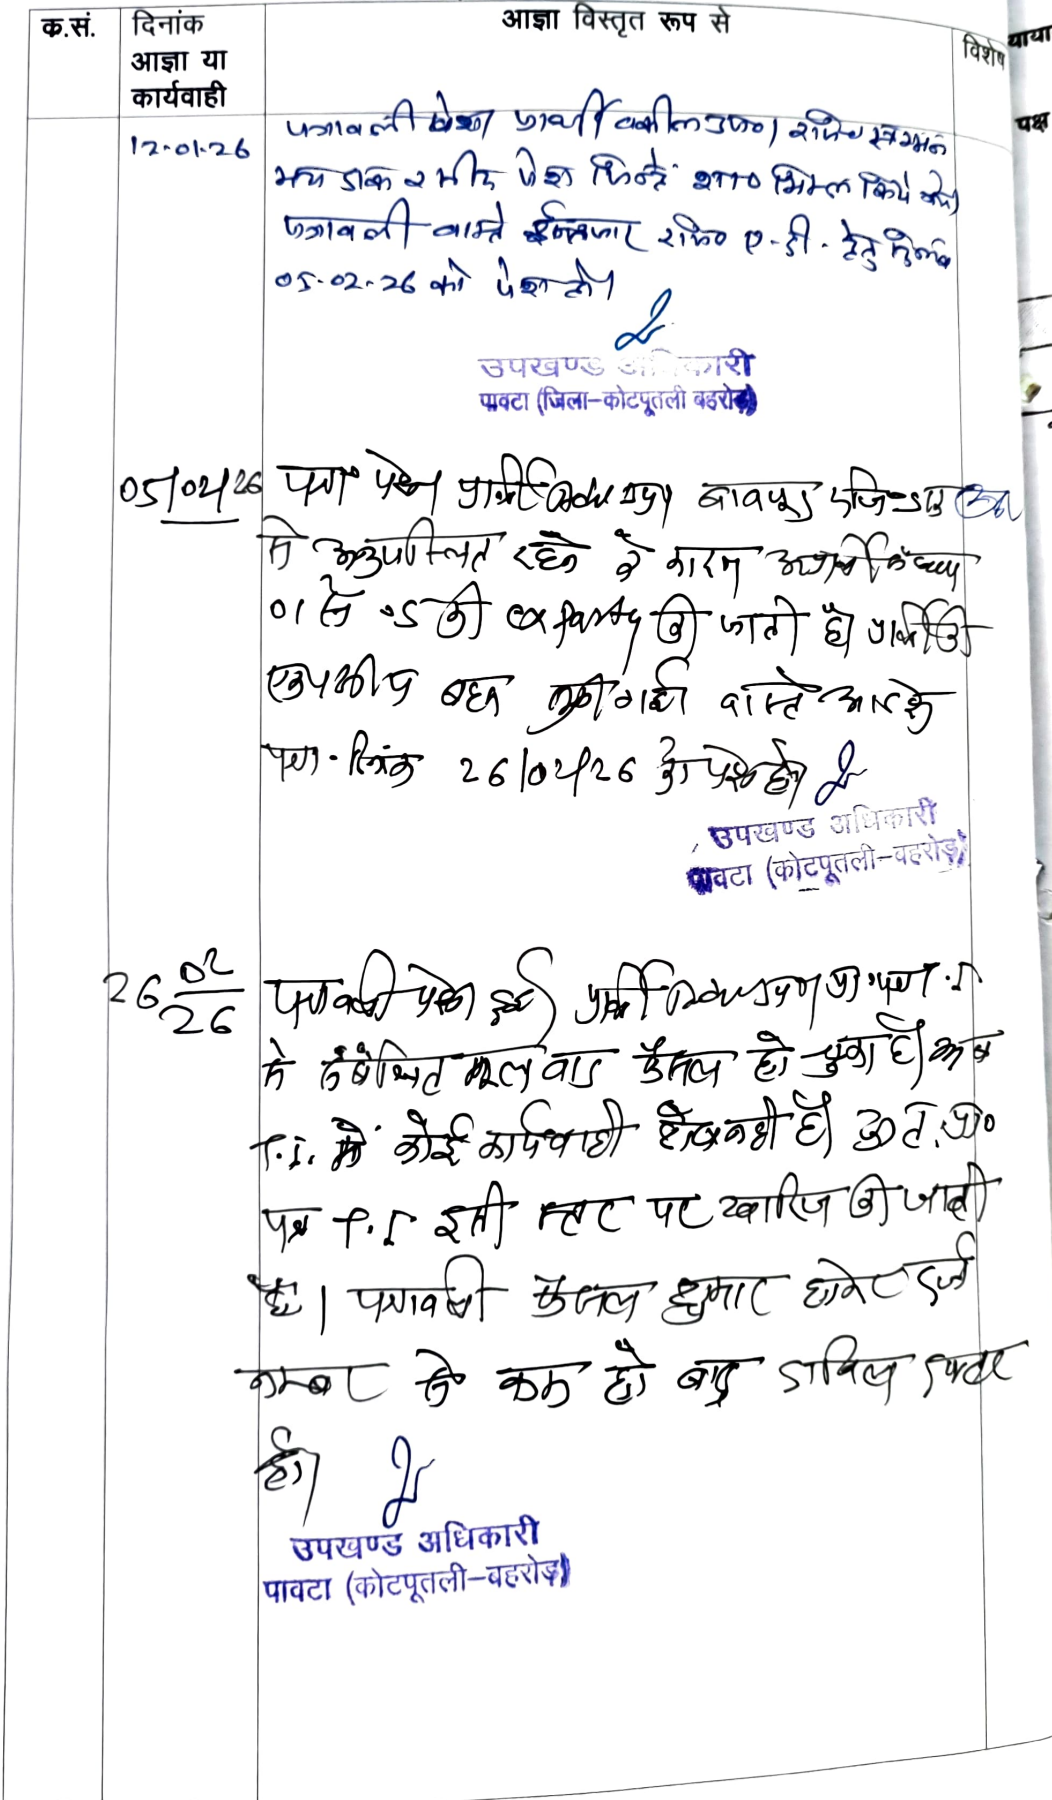 क.सं.
दिनांक
आज्ञा या
कार्यवाही
आज्ञा विस्तृत रूप से
विशेष
याया
पक्ष
12-01-26
पत्रावली पेश। प्रार्थी वकील उप०। रजि० सम्मन
मय डाक रसीद पेश जिन्हें शा० मिसल किये गये।
पत्रावली वास्ते इन्तजार रजि० ए.डी. हेतु दिनांक
05-02-26 को पेश हो।
उपखण्ड अधिकारी
पावटा (जिला-कोटपूतली बहरोड़)
05/02/26
पत्रा० पेश। प्रार्थी वकील उप०। बावजूद रजि० डाक
से अनुपस्थित रहने के कारण अप्रार्थी संख्या
01 से 05 की ex party की जाती है। प्रार्थी की
एकपक्षीय बहस सुनी गयी। वास्ते आदेश
पत्रा. दिनांक 26/02/26 को पेश हो।
उपखण्ड अधिकारी
पावटा (कोटपूतली-बहरोड़)
26 02/26
पत्रावली पेश हुई। प्रार्थी वकील उप०। प्रा० पत्र
से संबंधित मूल वाद फैसल हो चुका है। अब
T.I. में कोई कार्यवाही शेष नहीं है। अतः प्रा०
पत्र T.I इसी स्तर पर खारिज की जाती
है। पत्रावली फैसल शुमार होकर दर्ज
नम्बर से कम हो बाद दाखिल दफ्तर
हो।
उपखण्ड अधिकारी
पावटा (कोटपूतली-बहरोड़)